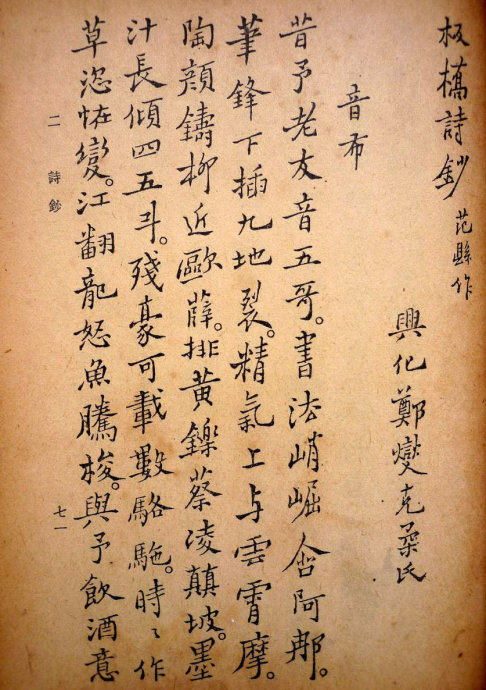 板橋詩鈔 范縣作
興化鄭燮克柔氏
音布
昔予老友音五哥。書法峭崛含阿那。
筆鋒下插九地裂。精氣上与雲霄摩。
陶顏鑄柳近歐薛。排黃鑠蔡凌顛坡。墨
汁長傾四五斗。殘豪可載數駱駞。時〻作
草恣怪變。江翻龍怒魚騰梭。與予飲酒意
二 詩鈔 七一